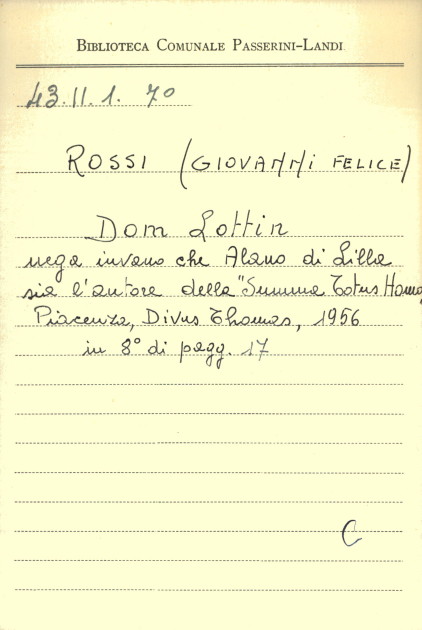 BIBLIOTECA COMUNALE PASSERINI-LANDI
43.II.1.70
ROSSI (GIOVANNI FELICE)
Dom Lottin
nega invano che Alano di Lilla
sia l'autore della "Summa Totus Homo
Piacenza, Divus Thomas, 1956
in 8° di pagg. 17
C